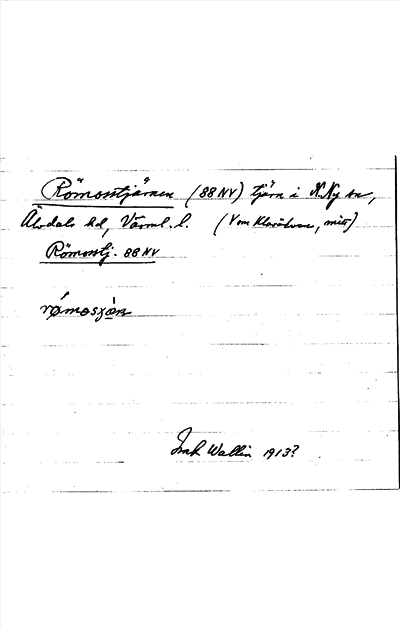 Römosstjärnen (88 NV) tjärn i N. Ny sn,
Älvdals hd, Värml. l. (V om Klarälven, mitt)
Römosstj. 88 NV
Erik Wallin 1913?